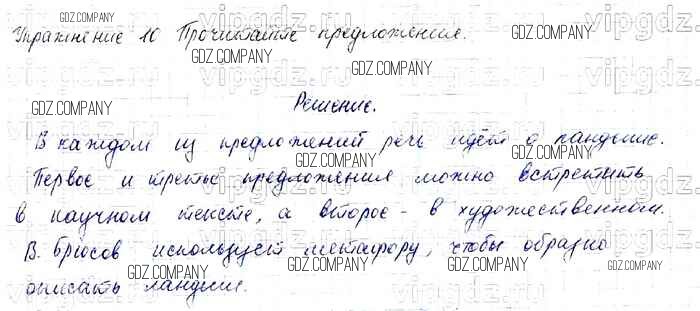 Упражнение 10 Прочитайте предложения.
Решение.
В каждом из предложений речь идёт о ландыше.
Первое и третье предложения можно встретить
в научном тексте, а второе - в художественном.
В. Брюсов использует метафору, чтобы образно
описать ландыш.
GDZ.COMPANY
GDZ.COMPANY
GDZ.COMPANY
GDZ.COMPANY
GDZ.COMPANY
GDZ.COMPANY
GDZ.COMPANY
GDZ.COMPANY
GDZ.COMPANY
GDZ.COMPANY
GDZ.COMPANY
vipgdz.ru